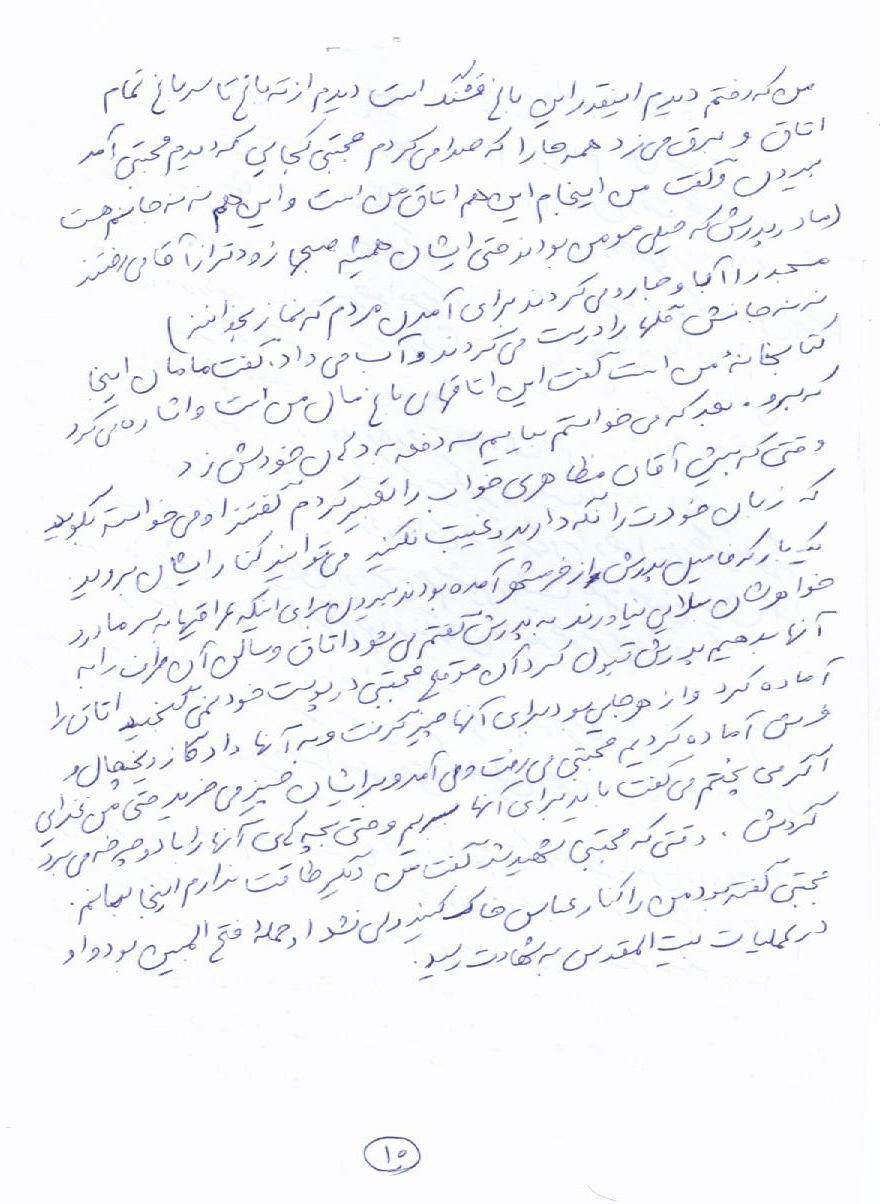 من که رفتم دیدم اینقدر این باغ قشنگ است دیدم از ته باغ تا سر باغ تمام
اتاق و برق می زد همه جا را که صدا می کردم مجتبی کجایی که دیدم مجتبی آمد
بیرون و گفت من اینجام این هم اتاق من است و این هم ننه جانم هست
(مادر پدرش که خیلی مومن بودند حتی ایشان همیشه صبحها زودتر از آقا می رفتند
مسجد را آب و جارو می کردند برای آمدن مردم که نماز بخوانند)
ننه جانش گلها را درست می کردند و آب می داد. گفت مامان اینجا
کتابخانۀ من است گفت این اتاقهای باغ مال من است و اشاره می کرد
که برو. بعد که می خواستم بیایم سه دفعه به دهان خودش زد
وقتی که پیش آقای مظاهری خواب را تعبیر کردم گفتند او می خواسته بگوید
که زبان خودت را نگه دارید و غیبت نکنید می توانید کنار ایشان بروید
یک بار که فامیل پدرش از خرمشهر آمده بودند بیرون برای اینکه عراقیها به سر مادر و
خواهرشان بلایی نیاورند به پدرش گفتم می شود اتاق و سالن آن طرف را به
آنها بدهیم پدرش قبول کرد آن موقع مجتبی در پوست خود نمی گنجید اتاق را
آماده کرد و از هر جایی بود برای آنها چیز گرفت و به آنها داد گاز و یخچال و
فرش آماده کردیم مجتبی می رفت و می آمد و برایشان چیز می خرید حتی من غذایی
اگر می پختم می گفت باید برای آنها ببریم و حتی بچه های آنها را با دوچرخه می برد
گردش. وقتی که مجتبی شهید شد گفت من دیگر طاقت ندارم اینجا بمانم.
مجتبی گفته بود من را کنار عباس خاک کنید ولی نشد او حملۀ فتح المبین بود و او
در عملیات بیت المقدس به شهادت رسید.
۱۰